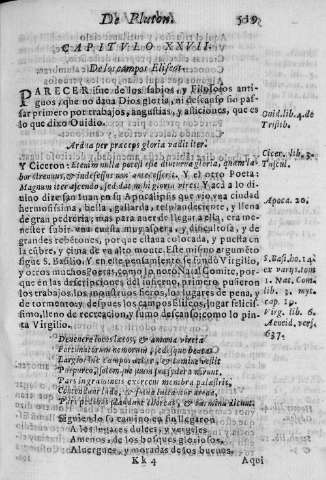 De Pluton. 519
CAPITVLO XXVII.
De los campos Eliseos.
PARECER fue de los sabios, y Filosofos anti-
guos, que no daua Dios gloria, ni descanso sin pas-
sar primero por trabajos, angustias, y afliciones, que es
lo que dixo Ouidio.
Ouid. lib. 4. de
Tristib.
Ardua per praeceps gloria vadit iter.
Y Ciceron: Etenim nulla potest esse diuturna gloria, quam la-
bor
Cicer. lib. 5.
Tuscul.
Y el otro Poeta:
Magnum iter ascendo, sed dat mihi gloria vires. Y acà a lo di-
uino dize san Iuan en su Apocalipsis que vio vna ciudad
Apoca. 20.
hermosissima, bella, gallarda, resplandeciente, y llena
de gran pedreria; mas para auer de llegar a ella, era me-
nester subir vna cuesta muy aspera, y dificultosa, y de
grandes rebentones, porque estaua colocada, y puesta en
la cũbre, y cima de vn alto monte. Este mismo argumẽto
sigue S. Basilio. Y en este pensamiento se fundò Virgilio,
S. Basi. ho. 14.
ex varijs, tom
y otros muchos Poetas, como lo notò Natal Comite, por-
1. Nat. Com.
que en las descripciones del infierno, primero pusieron
lib. 3. myt.
los trabajos, los monstruos fieros, los lugares de pena, y
cap. 19.
de tormento, y despues los campos Eliseos, lugar felicis-
Virg. lib. 6.
simo, lleno de recreacion, y sumo descanso; como lo pin-
Aeneid. vers.
ta Virgilio.
637.
Deuenere locos laetos, & amoena vireta
Fortunatorum nemorum, sedesque beatas.
Largior hic campos aether, & lumine vestit
Purpureo, solem
Pars in gramineis exercent membra palaestris,
Contendunt ludo, & fulua luctantur arena,
Pars pedibus plaudunt choreas, & carmina dicunt.
Siguiendo su camino en fin llegaron
A los lugares dulces, y vergeles
Amenos, de los bosques gloriosos,
Aluergues, y moradas de los buenos.
Kk 4 Aqui